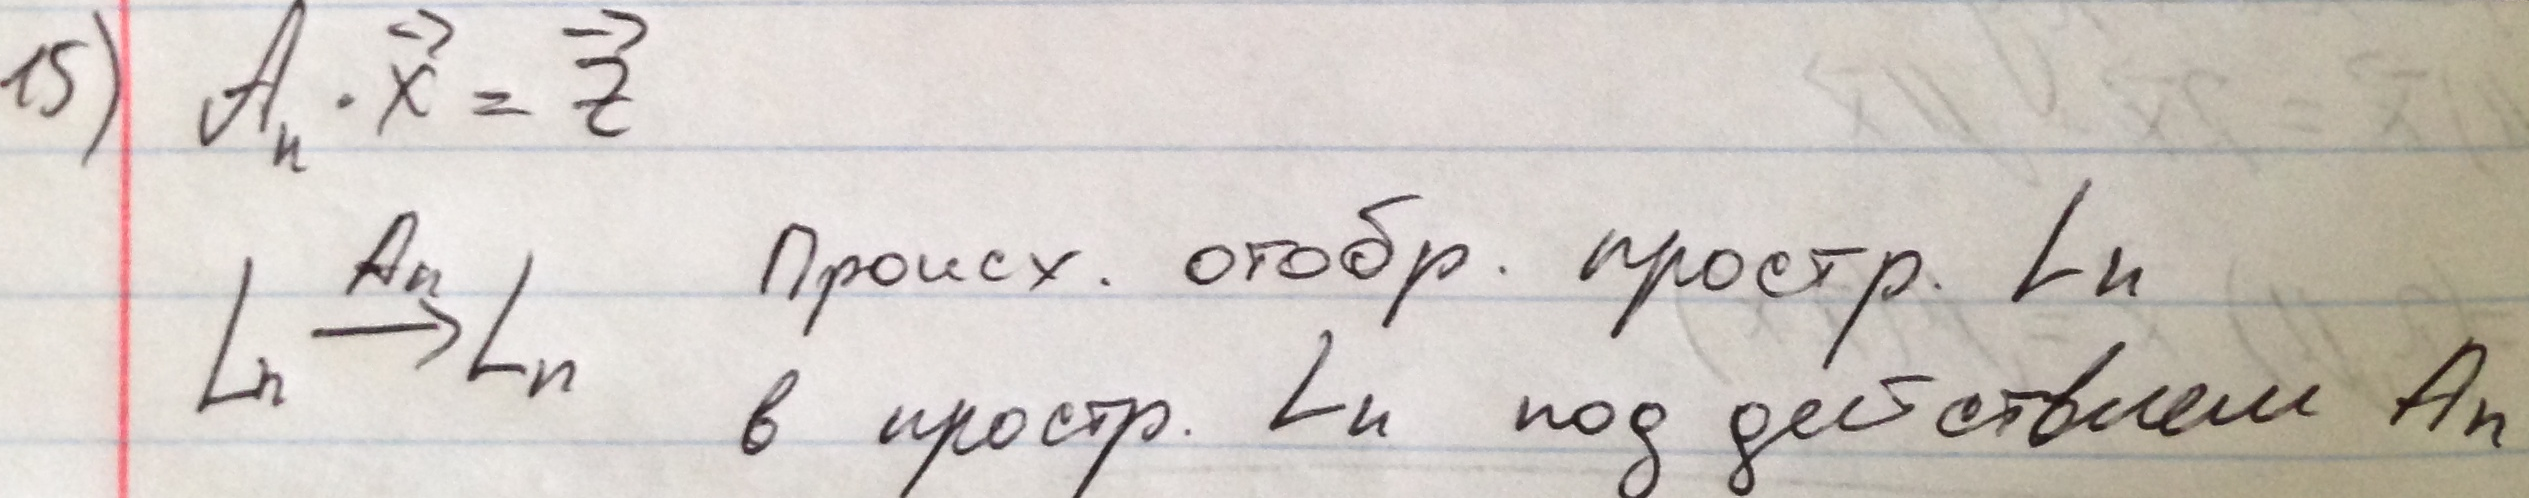 15) Aₙ · x⃗ = z⃗
Lₙ →(Aₙ) Lₙ Происх. отобр. простр. Lₙ
в простр. Lₙ под действием Aₙ